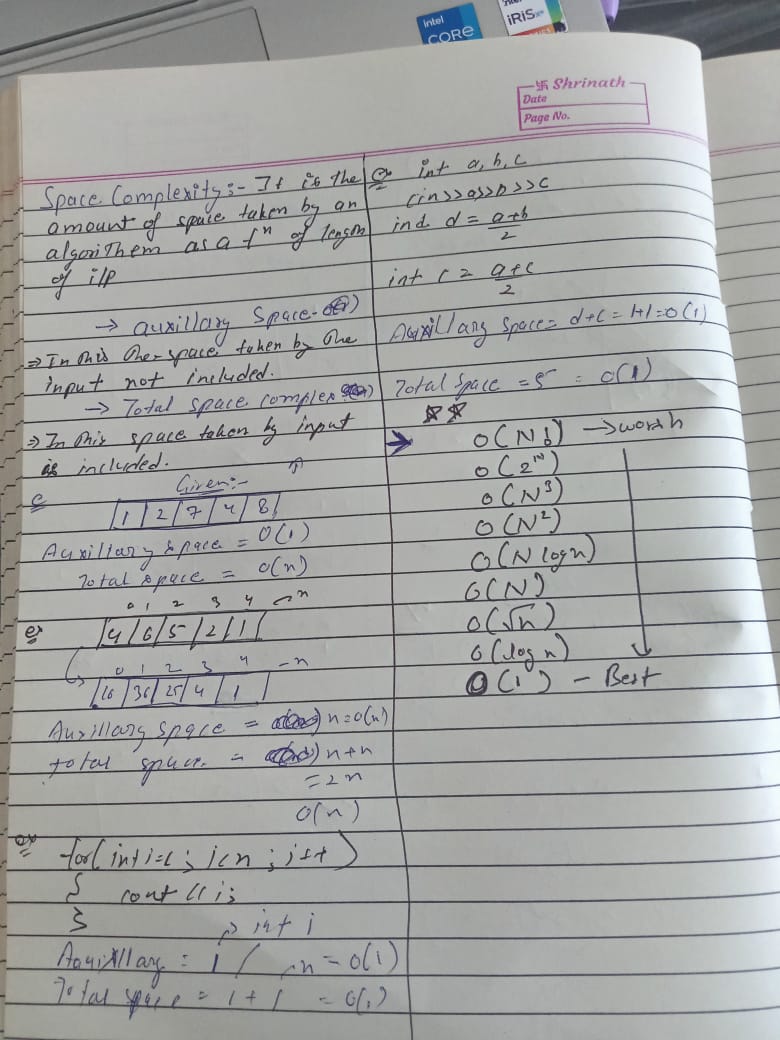 intel
CORE
iRIS xe
卐 Shrinath
Date
Page No.
Space Complexity :- It is the
amount of space taken by an
algorithem as a fⁿ of length
of i/p
→ auxillary Space -
⇒ In this the space taken by the
input not included.
→ Total space complex
⇒ In this space taken by input
is included.
Given:-
1 2 7 4 8
Auxiliary space = O(1)
Total space = O(n)
0 1 2 3 4 - n
ex
4 6 5 2 1
0 1 2 3 4 - n
16 36 25 4 1
Auxillary space = n = O(n)
total space = n + n
= 2n
O(n)
ex
for( int i=c ; i<n ; i++ )
{ cout << i;
}
→ int i
Auxillary = 1 / n = O(1)
Total space = 1 + 1 = O(1)
Q int a, b, c
cin>>a>>b>>c
ind d = a+b
2
int c = a+c
2
Auxillary Space = d+c = 1+1 = O(1)
Total space = 5 = O(1)
☆☆
→ O(N!) → worsh
O(2ᴺ)
O(N³)
O(N²)
O(N logn)
O(N)
O(√n)
O(log n)
O(1) - Best